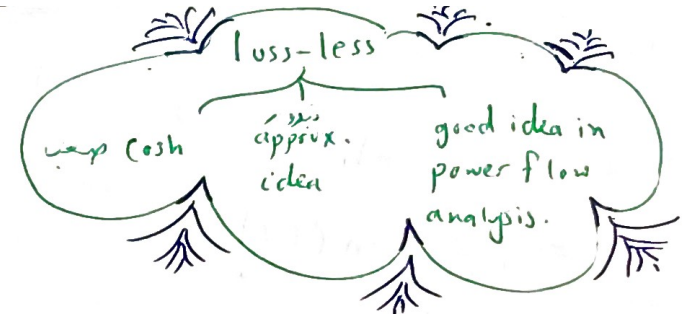 loss-less
cosh
approx.
idea
good idea in
power flow
analysis.